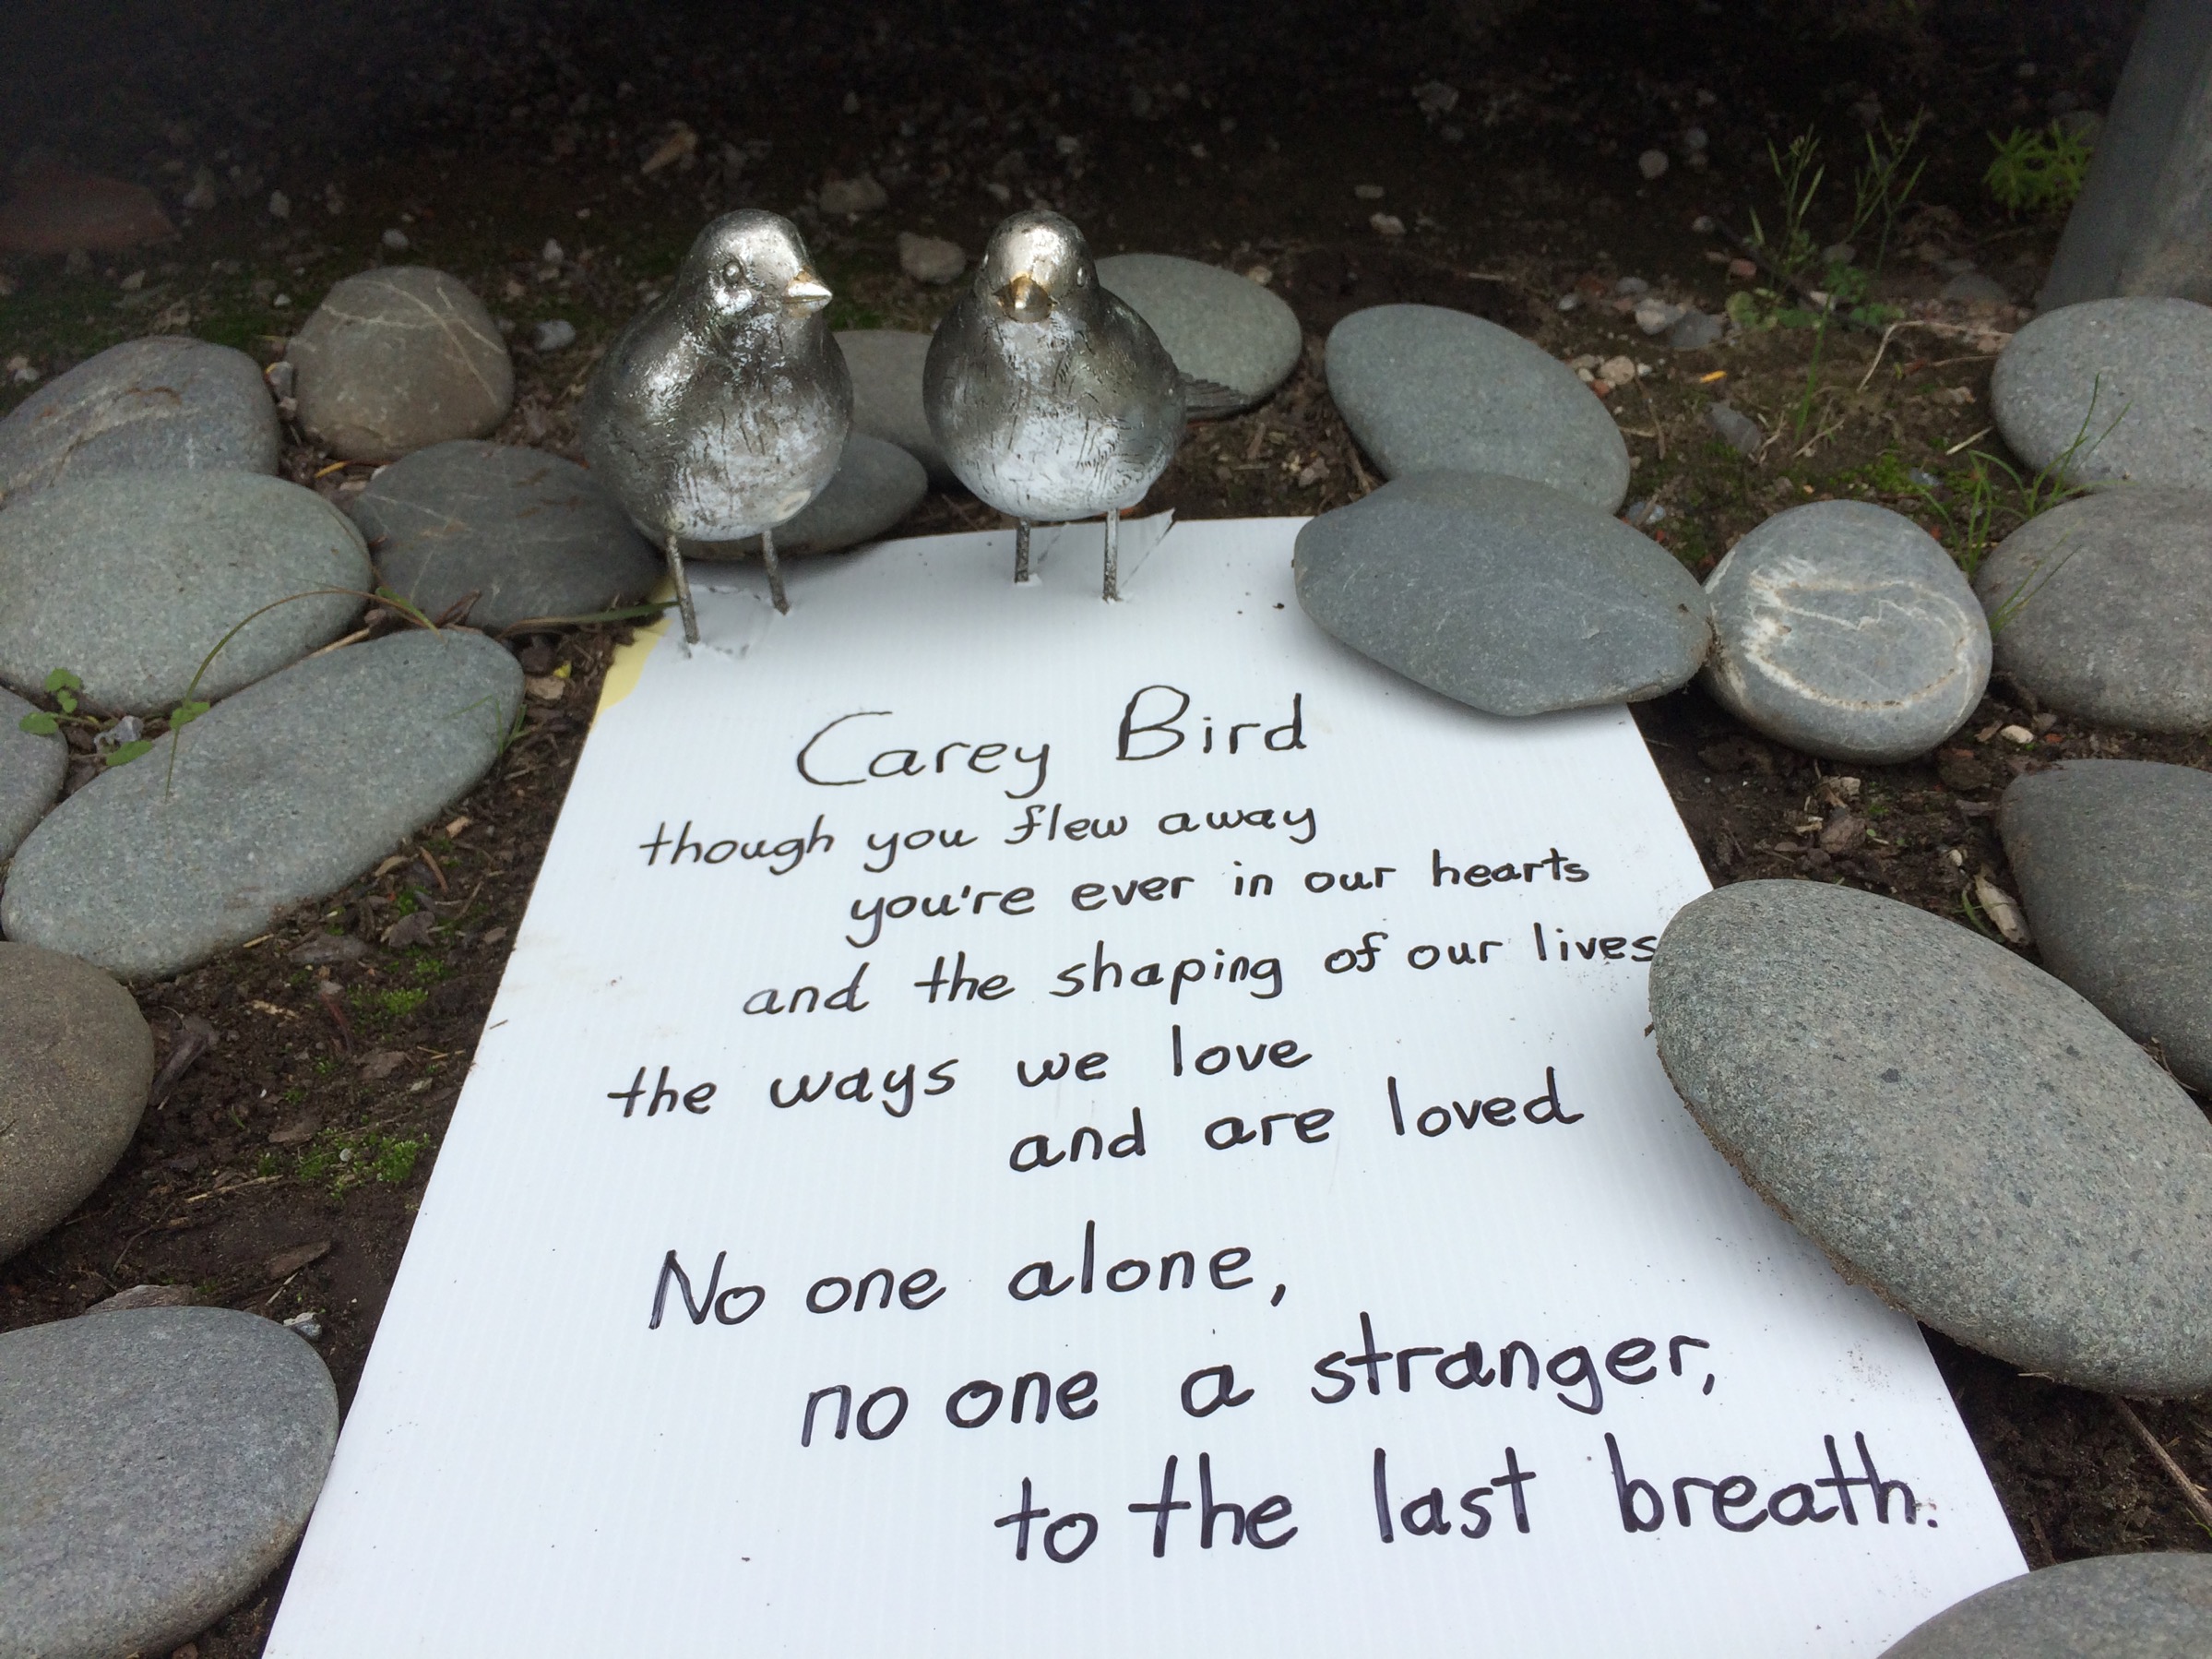 Carey Bird
though you flew away
you're ever in our hearts
and the shaping of our lives
the ways we love
and are loved
No one alone,
no one a stranger,
to the last breath.